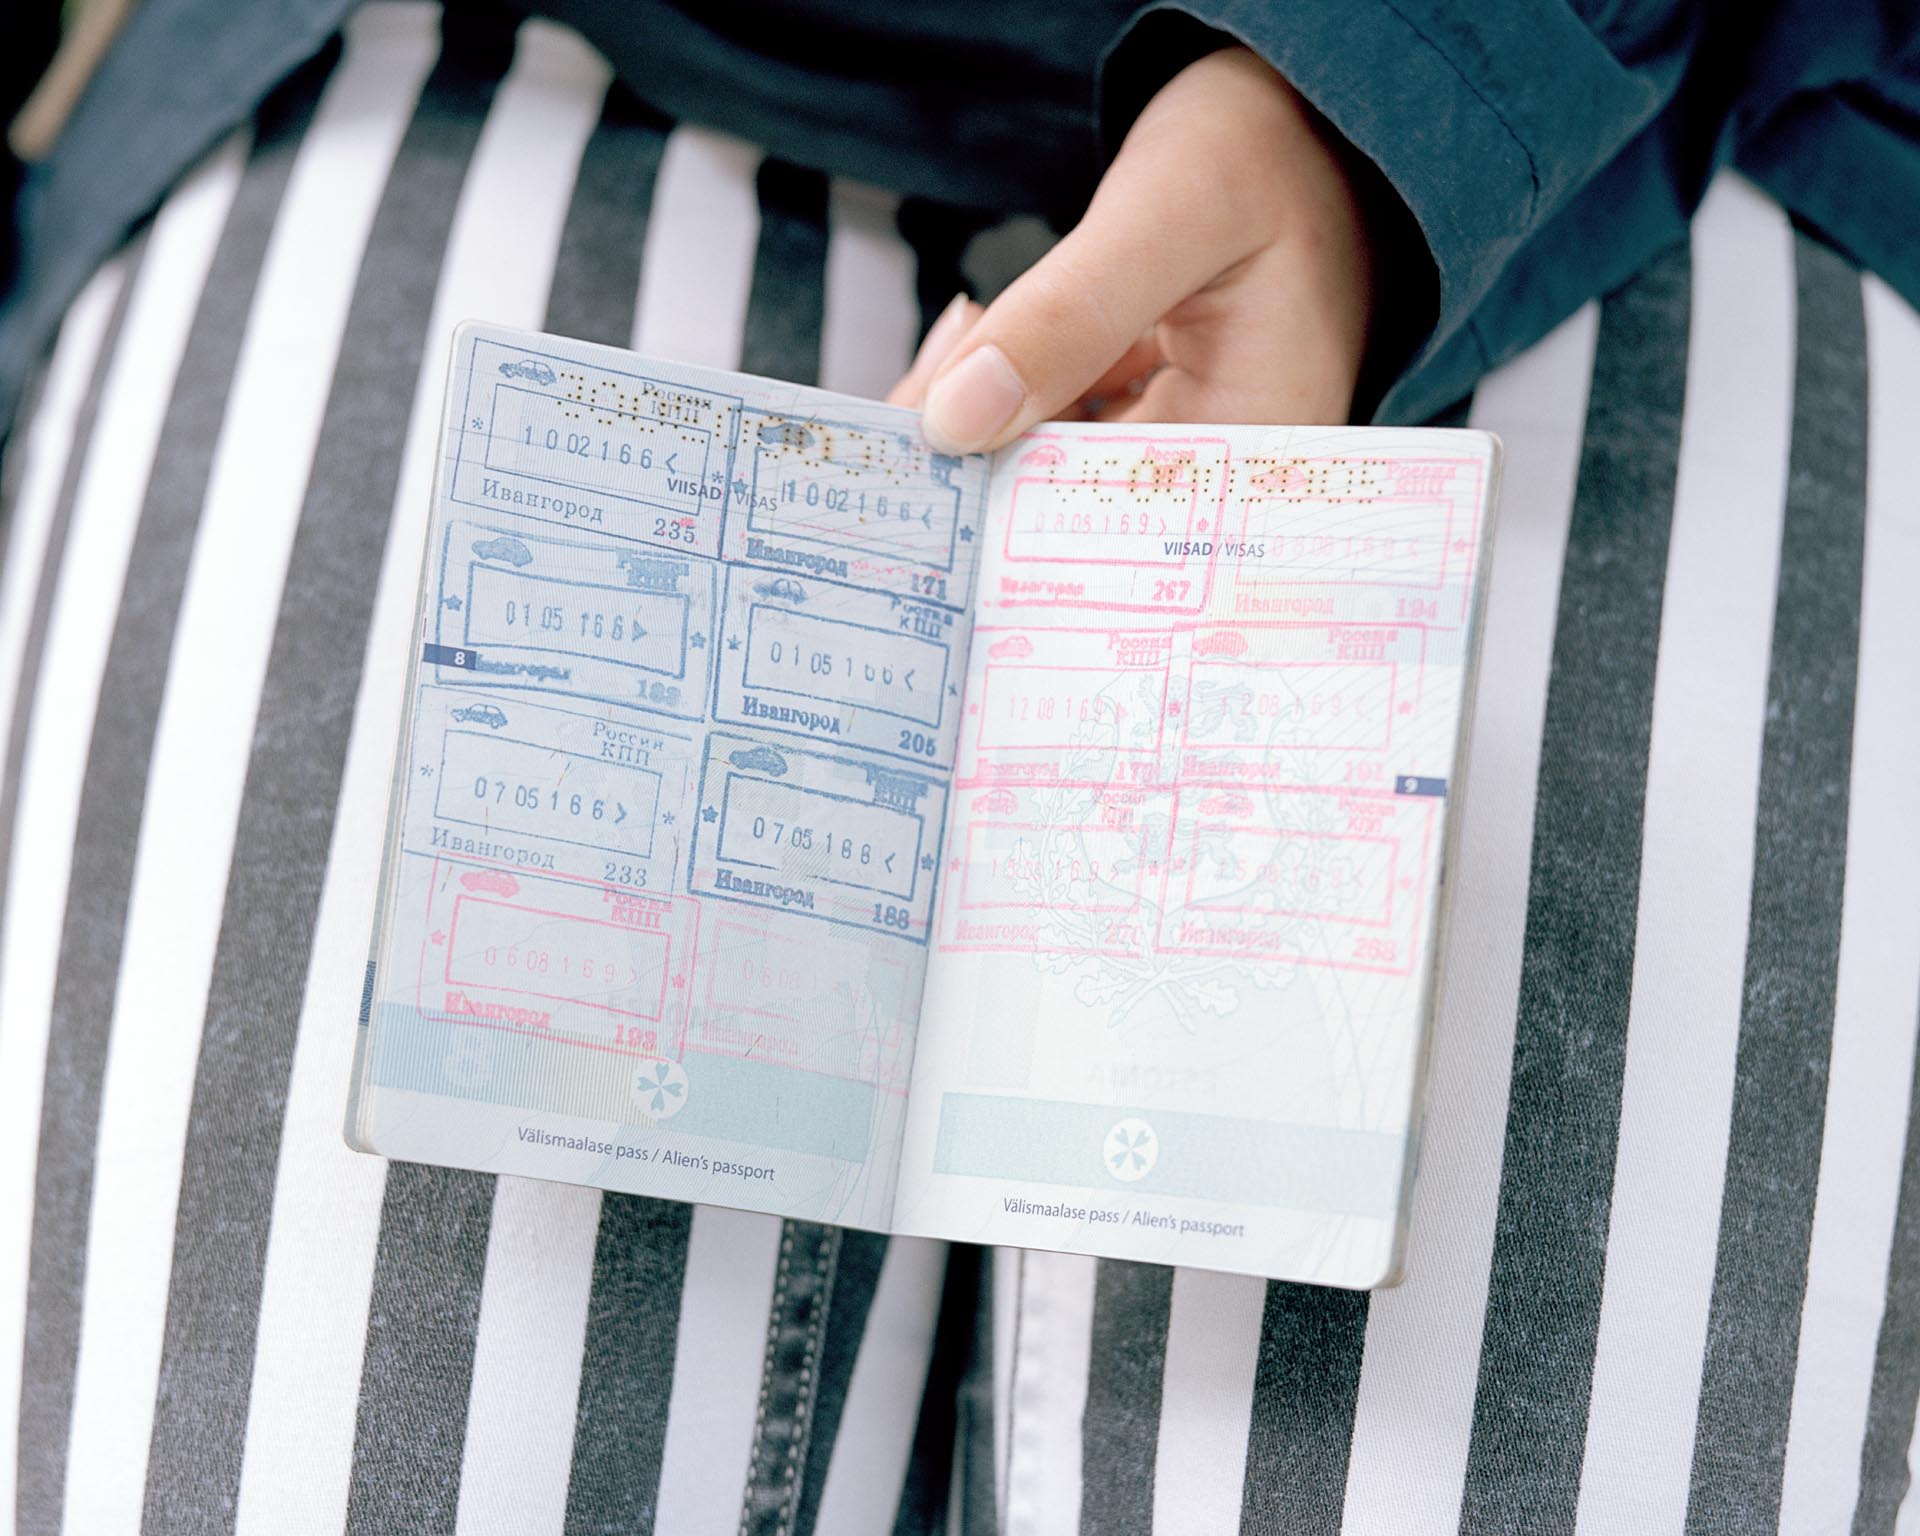 Россия
КПП
10 02 16 6 <
Ивангород 235
VIISAD / VISAS
10 02 16 6 <
Ивангород 171
Россия
КПП
01 05 16 6
8
Ивангород
Россия
КПП
01 05 1 6 6 <
Ивангород 205
Россия
КПП
07 05 16 6 >
Ивангород 233
07 05 16 6 <
Ивангород 188
Россия
КПП
06 08 16 9 >
Ивангород 193
Ивангород
Välismaalase pass / Alien's passport
Россия
КПП
08 08 16 9 >
Ивангород 267
VIISAD / VISAS
Россия
КПП
Ивангород 194
Россия
КПП
12 08 16 9
Ивангород
Россия
КПП
12 08 16 9 <
Ивангород 191
9
Россия
КПП
Ивангород
Россия
КПП
15 08 16 9 <
Ивангород 268
ESTONIA
Välismaalase pass / Alien's passport